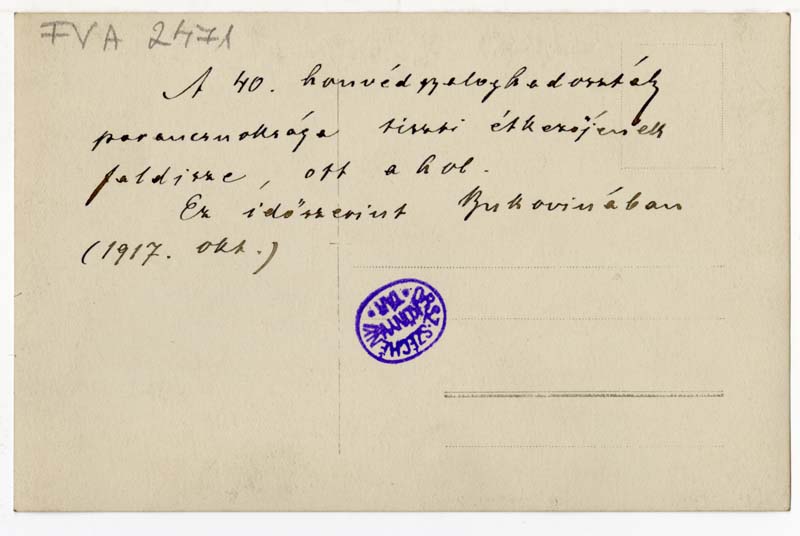 FVA 2471
A 40. honvéd gyaloghadosztály
parancsnoksága tiszti étkezőjének
faldisze, ott ahol.
Ez időszerint Bukovinában
(1917. okt.)
ORSZ. SZÉCHÉNYI
KÖNYV
TÁR